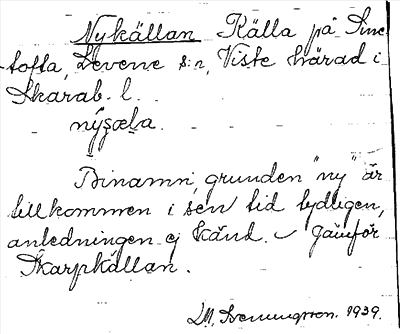 Nykällan Källa på Sme-
tofta, Levene s:n, Viste härad i
Skarab. l.
nýçæla.
Binamn, grunden "ny" är
tillkommen i sen tid tydligen,
anledningen ej känd. – Jämför
Skarpkällan.
1939.